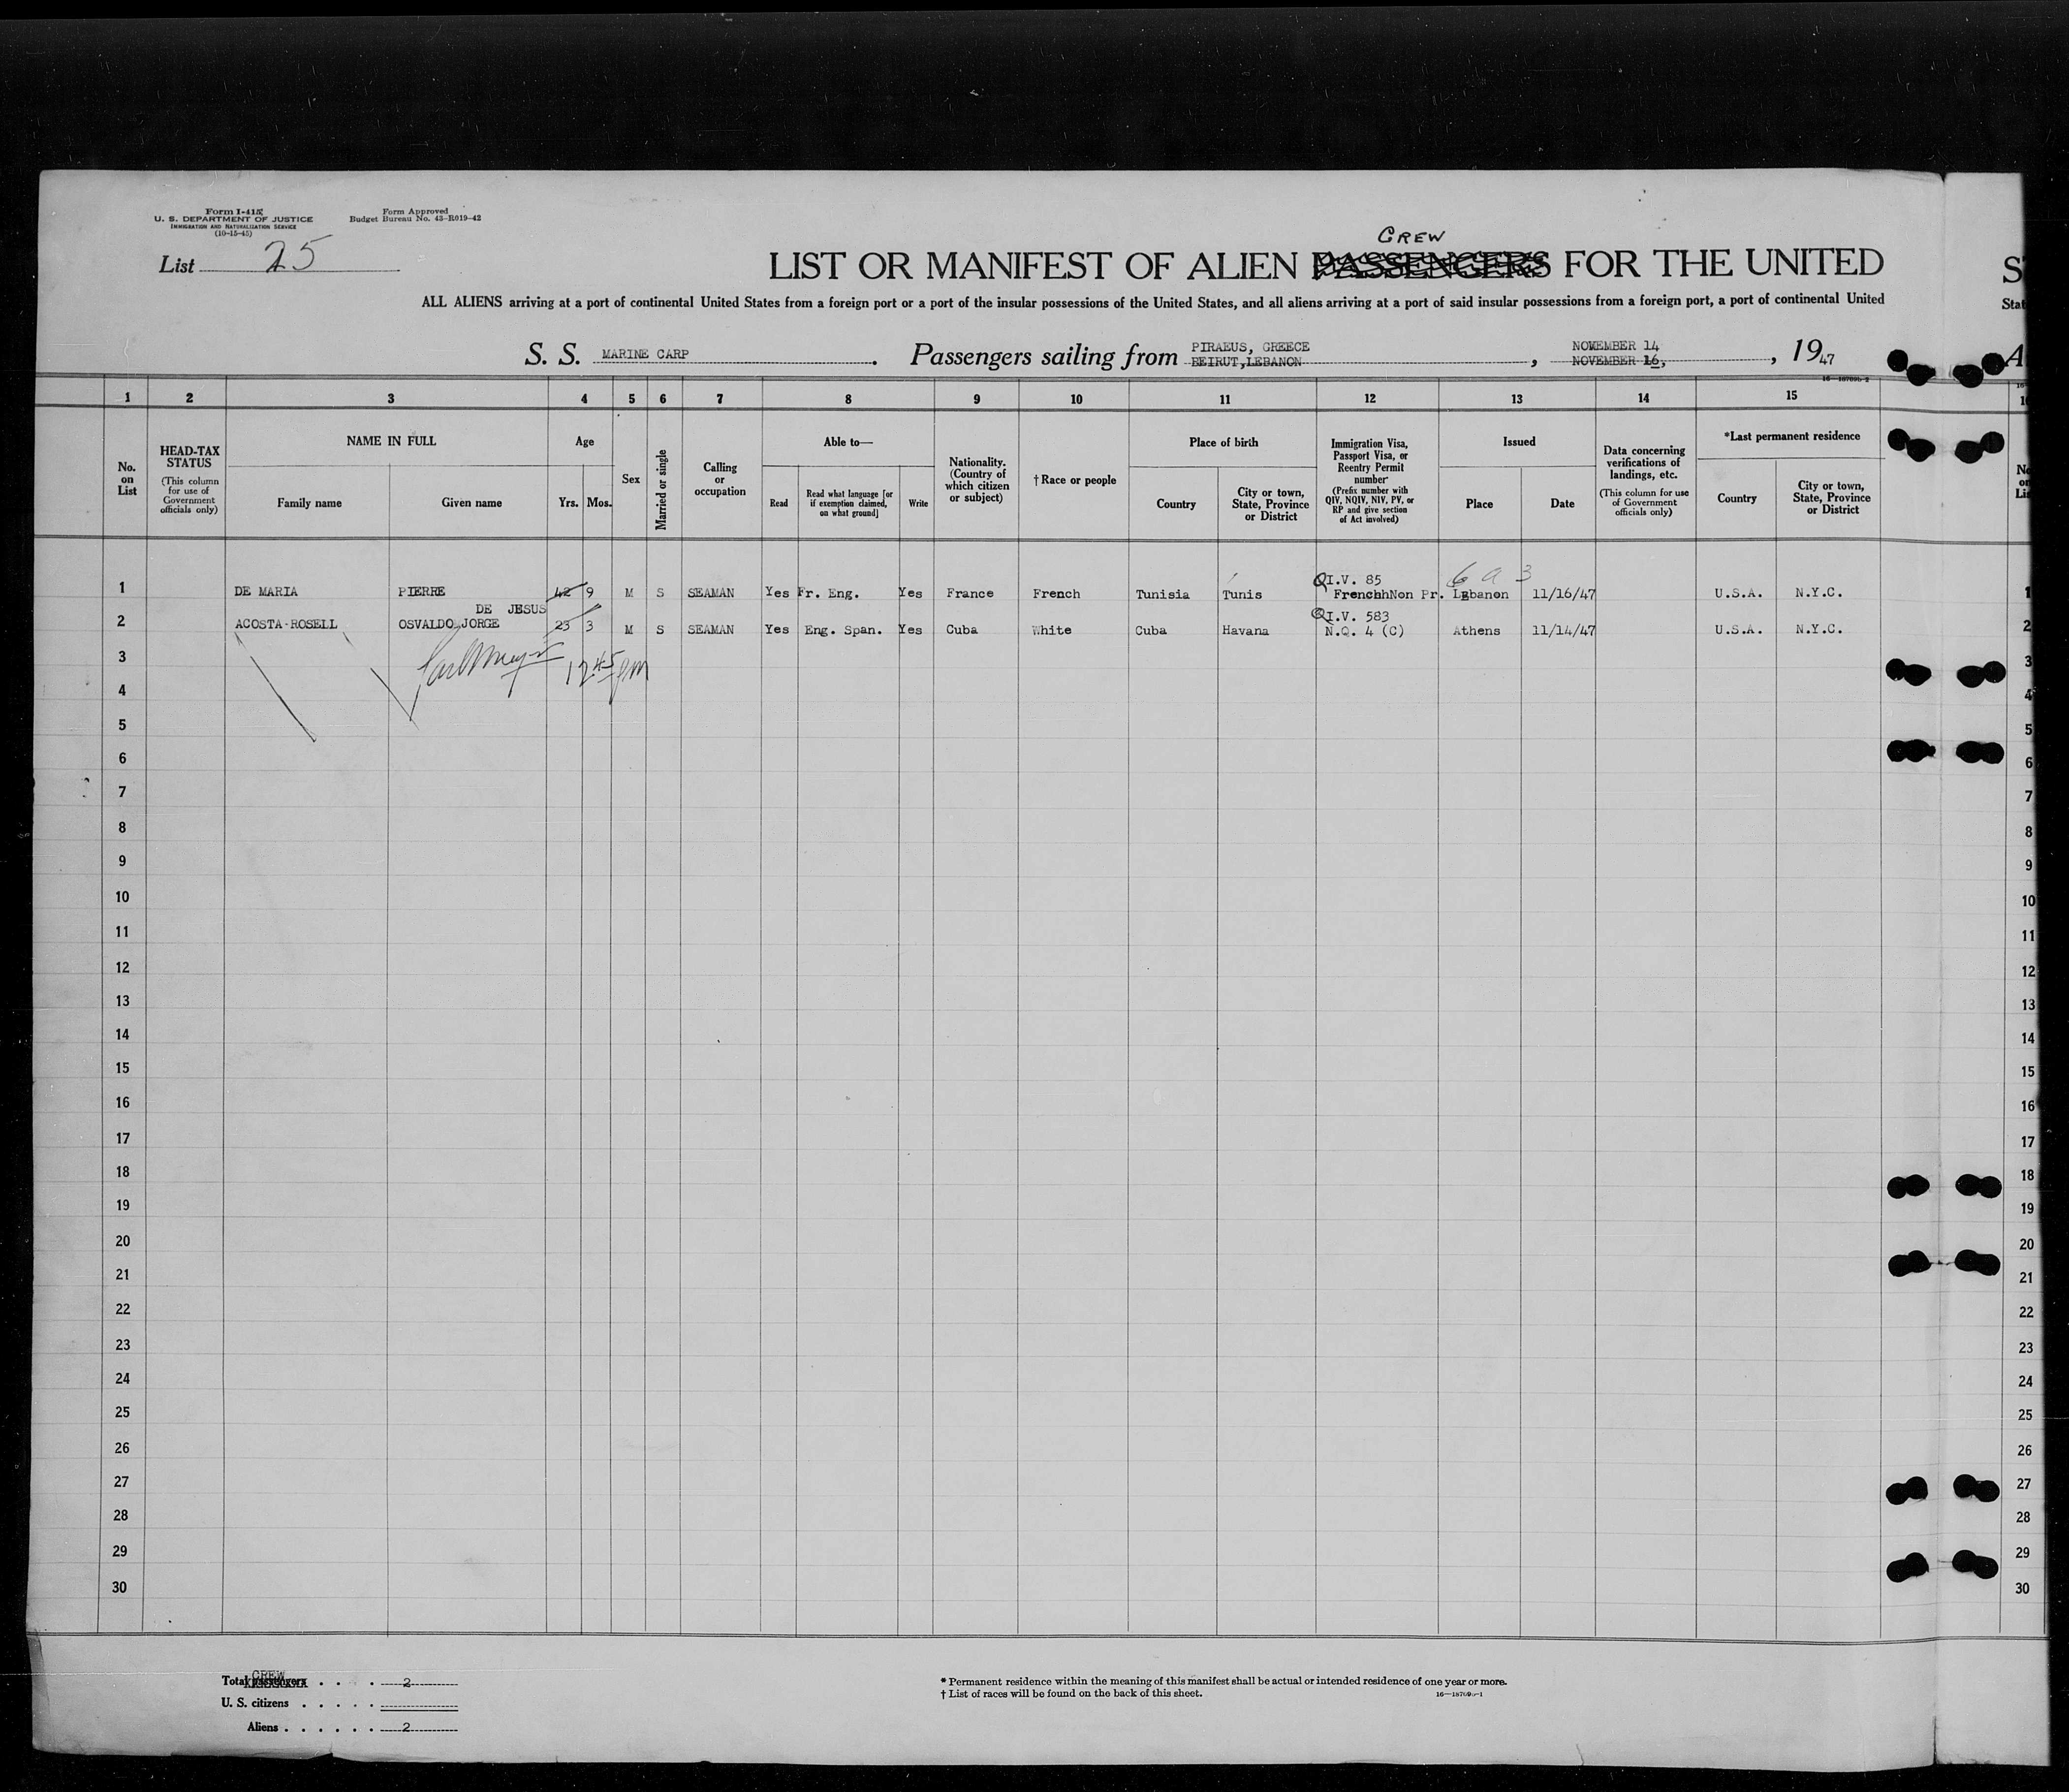 Form I-415
U. S. DEPARTMENT OF JUSTICE
IMMIGRATION AND NATURALIZATION SERVICE
(10-15-45)
Form Approved
Budget Bureau No. 43-R019-42
List 25
CREW
LIST OR MANIFEST OF ALIEN PASSENGERS FOR THE UNITED
ALL ALIENS arriving at a port of continental United States from a foreign port or a port of the insular possessions of the United States, and all aliens arriving at a port of said insular possessions from a foreign port, a port of continental United
Stat
S. S. MARINE CARP. Passengers sailing from PIRAEUS, GREECE BEIRUT,LEBANON, NOVEMBER 14 NOVEMBER 16, , 1947
1 2 3 4 5 6 7 8 9 10 11 12 13 14 15
No. on List
HEAD-TAX STATUS
(This column for use of Government officials only)
NAME IN FULL
Family name
Given name
Age
Yrs. Mos.
Sex
Married or single
Calling or occupation
Able to—
Read
Read what language [or if exemption claimed, on what ground]
Write
Nationality. (Country of which citizen or subject)
† Race or people
Place of birth
Country
City or town, State, Province or District
Immigration Visa, Passport Visa, or Reentry Permit number
(Prefix number with QIV, NQIV, NIV, PV, or RP and give section of Act involved)
Issued
Place
Date
Data concerning verifications of landings, etc.
(This column for use of Government officials only)
*Last permanent residence
Country
City or town, State, Province or District
QI.V. 85 6 a 3
1 DE MARIA PIERRE 42 9 M S SEAMAN Yes Fr. Eng. Yes France French Tunisia Tunis FrenchhNon Pr. Lebanon 11/16/47 U.S.A. N.Y.C. 1
DE JESUS QI.V. 583
2 ACOSTA-ROSELL OSVALDO JORGE 23 3 M S SEAMAN Yes Eng. Span. Yes Cuba White Cuba Havana N.Q. 4 (C) Athens 11/14/47 U.S.A. N.Y.C. 2
12 45 pm
3 3
4 4
5 5
6 6
7 7
8 8
9 9
10 10
11 11
12 12
13 13
14 14
15 15
16 16
17 17
18 18
19 19
20 20
21 21
22 22
23 23
24 24
25 25
26 26
27 27
28 28
29 29
30 30
CREW
Total passengers . . . . 2
U. S. citizens . . . . .
Aliens . . . . . . 2
* Permanent residence within the meaning of this manifest shall be actual or intended residence of one year or more.
† List of races will be found on the back of this sheet.